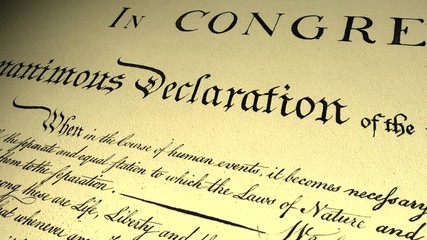 In CONGRE
nanimous Declaration of the
When in the Course of human events, it becomes necessary
the separate and equal station to which the Laws of Nature and
them to the separation. We
ong these are Life, Liberty and the
That whenever